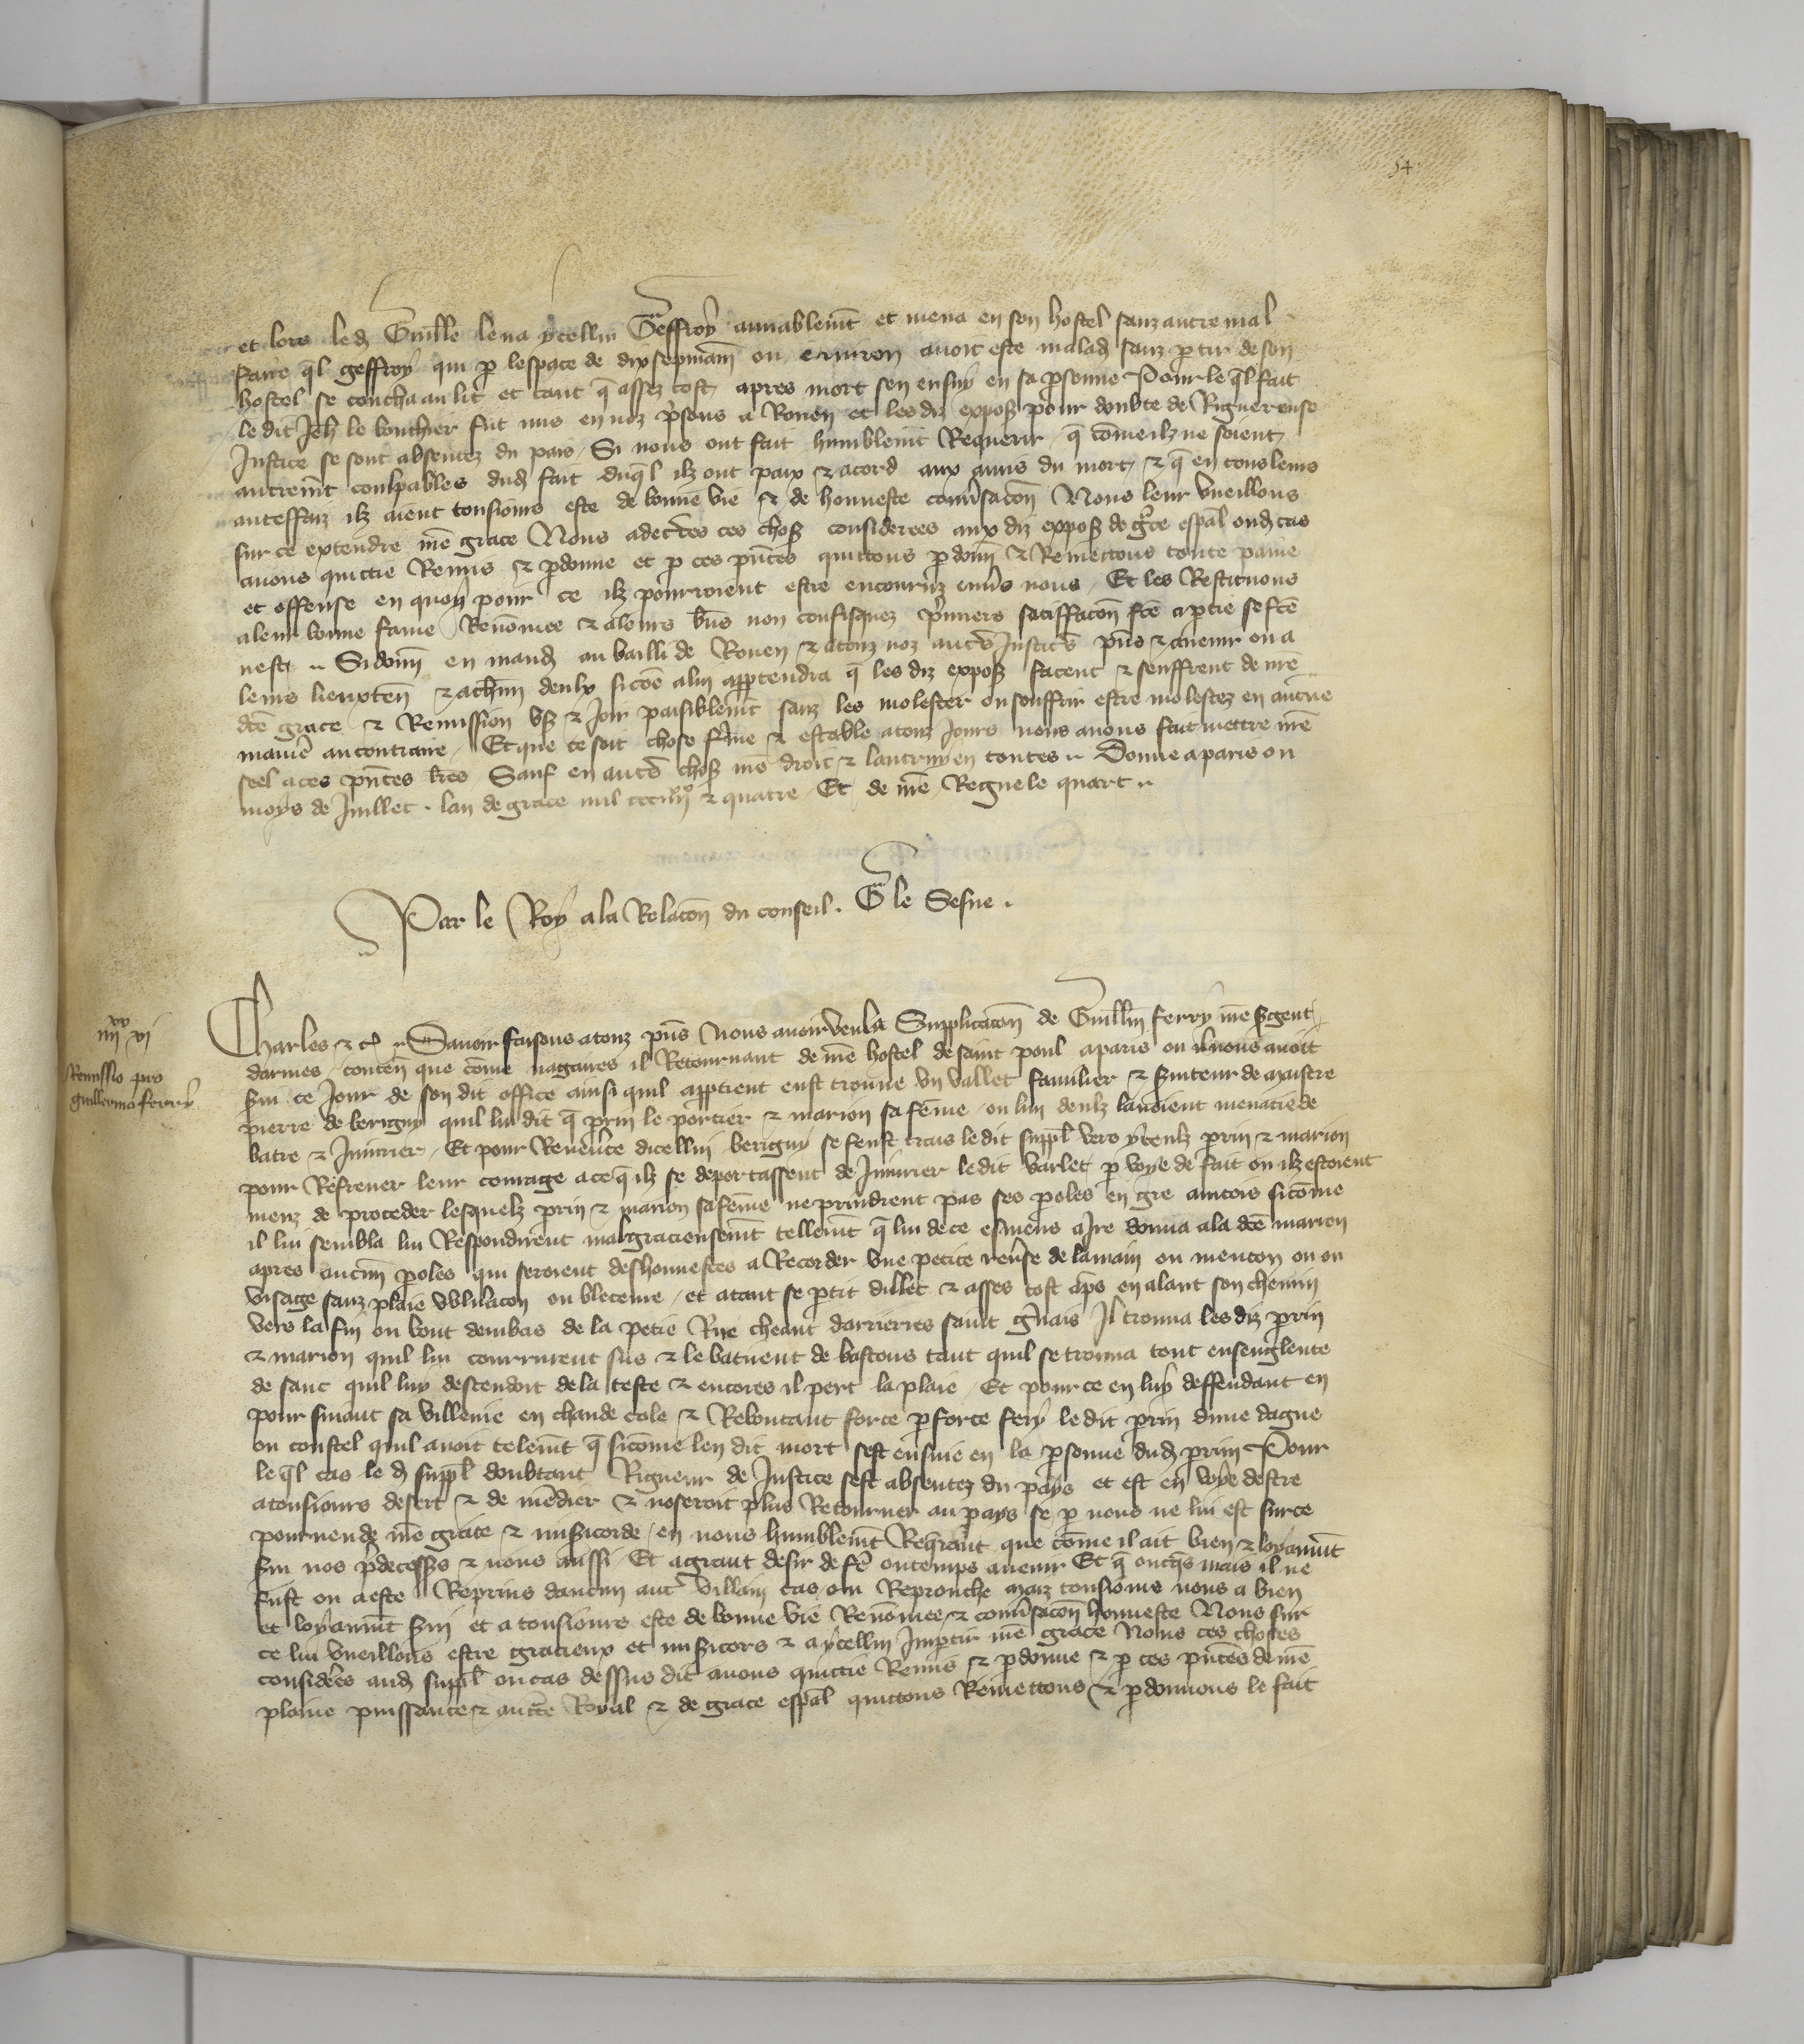 54
et lors led Guille lena ycellui Geffroy amiablemt et mena en son hostel sanz autre mal
faire ql geffroy qui p lespace de dix sepmain ou environ avoit este malad sanz ptir de son
hostel se coucha au lit et tant q assez tost apres mort sen ensuy en sa psonne Pour le ql fait
le dit Jeh le bouchier fut mis en noz prisons a Rouen et les diz expos pour doubte de Riguereuse
Justice se sont absentez du pais Si nous ont fait humblemt Requerir q come ilz ne soient
autremt coulpables dud fait duql ilz ont paix & acord aux amis du mort & q en tous leurs
autres faiz ilz aient tousiours este de bonne vie & de honneste conversacon Nous leur vueillons
sur ce extendre nre grace Nous adecertes ces choses considerees aux diz expos de grace espal oud cas
avons quictie Remis & pdonne et p ces pntes quictons pdonn & Remectons toute paine
et offense en quoy pour ce ilz pourroient estre encouruz envers nous Et les Restituons
a leur bonne fame Renommee & a leurs biens non confisquez premiers satiffacon fcte a ptie se fcte
nest Si donn en mand au bailli de Rouen & a touz noz autres Justiciers pns & avenir ou a
leurs lieuxten & a chun deulx sicoe a lui apptendra q les diz expos facent & seuffrent de nre
dce grace & Remission user & Joir paisiblemt sanz les molester ou souffrir estre molestez en aucune
maniere au contraire Et que ce soit chose ferme & estable a touz jours nous avons fait mettre nre
seel a ces pntes lres Sauf en autres choses nre droit & lautruy en toutes Donne a paris ou
moys de Juillet lan de grace mil ccciiiixx & quatre Et de nre Regne le quart
Par le Roy a la Relacon du conseil. G le Sesne.
iiiixx vi
Remissio pro
guillermo ferry
Charles &c Savoir faisons a touz pns Nous avoir veu la Supplicacon de Guillm ferry nre sgent
darmes conten que come nagaires il Retournant de nre hostel de saint poul a paris ou il nous avoit
svi ce Jour de son dit office ainsi quil apptient eust trouve un vallet familier & sviteur de maistre
pierre de berigny quil lui dit q prin le portier & marion sa feme ou lun deulz lavoient menacie de
batre & Injurier Et pour Reverence dicellui berigny se feust trais le dit suppl vers yceulz prin & marion
pour Refrener leur courage a ce q ilz se deportassent de Injurier le dit varlet p voye de fait ou ilz estoient
menz de proceder lesquelz prin & marion sa feme ne prindrent pas ses poles en gre aincois sicome
il lui sembla lui Respondirent malgracieusemt tellemt q lui de ce esmeus a Ire donna a la dce marion
apres aucun poles qui seroient deshonnestes a Recorder une petite renverse de la main ou menton ou ou
visage sanz plaie ublilacon ou bleceure et atant se ptit dillec & asses tost aps en alant son chemin
vers la fin ou bout dembas de la petie Rue cheant darrieres saint gervais Il trouva les diz prin
& marion quil lui coururent sus & le batirent de bastons tant quil se trouva tout ensenglente
de sanc quil luy descendoit de la teste & encores il pert la plaie Et pour ce en luy deffendant en
poursuiant sa villenie en chaude cole & Reboutant force p force fery le dit prin dune dague
ou coustel quil avoit telemt q sicome len dit mort sest ensuie en la psonne dud prin Pour
le ql cas le d suppl doubtant Rigueur de Justice sest absentez du pays et est en voye destre
a tousiours desert & de mendier & noseroit plus Retourner au pays se p nous ne lui est sur ce
pourveu de nre grace & misicorde en nous humblemt Requerant que come il ait bien & loyaumt
svi nos pdecesss & nous aussi Et a grant desir de fe ou temps avenir Et q oncqs mais il ne
fust ou a este Reprins daucun autre villain cas ou Reprouche maiz tousiours nous a bien
et loyaumt svi et a tousiours este de bonne vie Renommee & conversacon honneste Nous sur
ce lui vueillons estre gracieux et misicors & a ycellui Impartir nre grace Nous ces choses
considees aud suppl ou cas dessus dit avons quictie Remis & pdonne & p ces pntes de nre
plaine puissance & aucte Royal & de grace espal quictons Remettons & pdonnons le fait